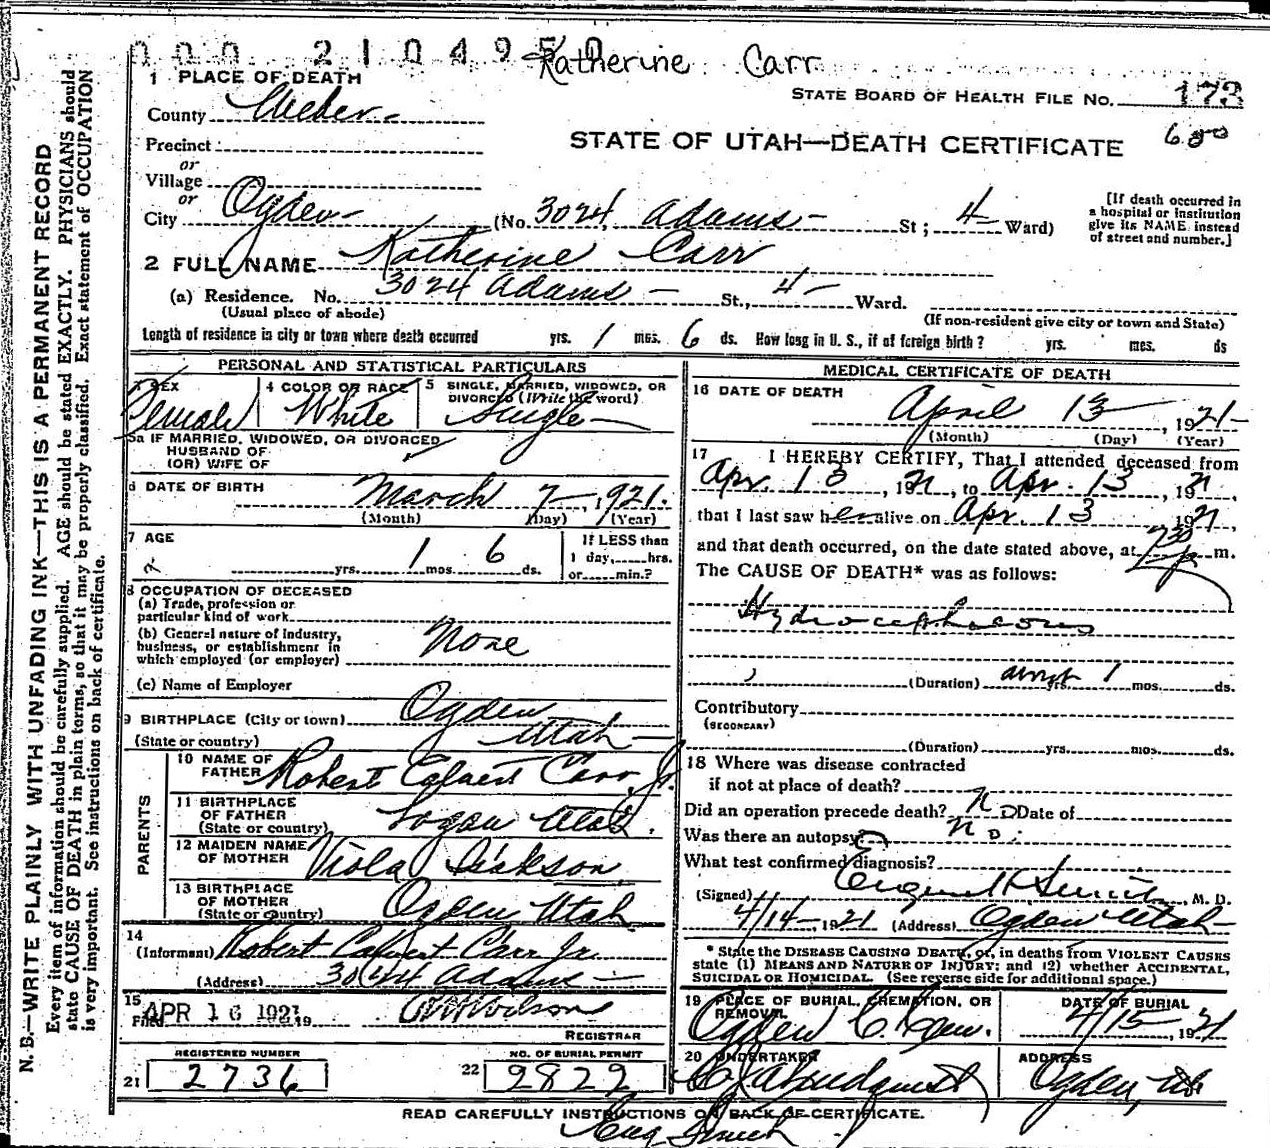 000 210495 0 Katherine Carr
1 PLACE OF DEATH
STATE BOARD OF HEALTH FILE NO. 173
County Weber
STATE OF UTAH—DEATH CERTIFICATE 600
Precinct
or
Village
or
City Ogden (No. 3024 Adams St; 4 Ward)
[If death occurred in
a hospital or institution
give its NAME instead
of street and number.]
2 FULL NAME Katherine Carr
(a) Residence. No. 3024 Adams St., 4 Ward.
(Usual place of abode) (If non-resident give city or town and State)
Length of residence in city or town where death occurred yrs. 1 mos. 6 ds. How long in U. S., if of foreign birth? yrs. mos. ds
PERSONAL AND STATISTICAL PARTICULARS
3 SEX Female
4 COLOR OR RACE White
5 SINGLE, MARRIED, WIDOWED, OR
DIVORCED (Write the word) Single
5a IF MARRIED, WIDOWED, OR DIVORCED
HUSBAND OF
(OR) WIFE OF
6 DATE OF BIRTH March 7, 1921.
(Month) (Day) (Year)
7 AGE
yrs. 1 mos. 6 ds.
If LESS than
1 day, hrs.
or min.?
8 OCCUPATION OF DECEASED
(a) Trade, profession or
particular kind of work
(b) General nature of industry,
business, or establishment in
which employed (or employer) None
(c) Name of Employer
9 BIRTHPLACE (City or town) Ogden
(State or country) Utah
PARENTS
10 NAME OF
FATHER Robert Calvert Carr Jr.
11 BIRTHPLACE
OF FATHER
(State or country) Logan Utah.
12 MAIDEN NAME
OF MOTHER Viola Dickson
13 BIRTHPLACE
OF MOTHER
(State or country) Ogden Utah
14
(Informant) Robert Calvert Carr Jr.
(Address) 3024 Adams
15
Filed APR 16 1921 19 Wilson
REGISTRAR
REGISTERED NUMBER
21 2736
NO. OF BURIAL PERMIT
22 2822
MEDICAL CERTIFICATE OF DEATH
16 DATE OF DEATH April 13, 1921
(Month) (Day) (Year)
17 I HEREBY CERTIFY, That I attended deceased from
Apr. 13, 1921, to Apr. 13, 1921,
that I last saw her alive on Apr 13 1921,
and that death occurred, on the date stated above, at 7 30 p m.
The CAUSE OF DEATH* was as follows:
Hydrocephalous
(Duration) about yrs. 1 mos. ds.
Contributory
(SECONDARY)
(Duration) yrs. mos. ds.
18 Where was disease contracted
if not at place of death?
Did an operation precede death? no Date of
Was there an autopsy no.
What test confirmed diagnosis?
(Signed) Eugene H Smith, M. D.
4/14, 1921 (Address) Ogden Utah
* State the DISEASE CAUSING DEATH, or, in deaths from VIOLENT CAUSES
state (1) MEANS AND NATURE OF INJURY; and (2) whether ACCIDENTAL,
SUICIDAL OR HOMICIDAL. (See reverse side for additional space.)
19 PLACE OF BURIAL, CREMATION, OR
REMOVAL Ogden C. Cem.
DATE OF BURIAL
4/15, 1921
20 UNDERTAKER
Lindquist
ADDRESS
Ogden, Ut.
READ CAREFULLY INSTRUCTIONS ON BACK OF CERTIFICATE.
N. B.—WRITE PLAINLY WITH UNFADING INK—THIS IS A PERMANENT RECORD
Every item of information should be carefully supplied. AGE should be stated EXACTLY. PHYSICIANS should
state CAUSE OF DEATH in plain terms, so that it may be properly classified. Exact statement of OCCUPATION
is very important. See instructions on back of certificate.